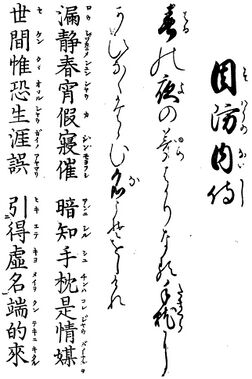 周防内侍
春の夜の夢はかりなる手枕に
かひなくたゝむ名こそをしけれ
漏静春宵假寢催 暗知手枕是情媒
世間惟恐生涯誤 引得虚名端的來